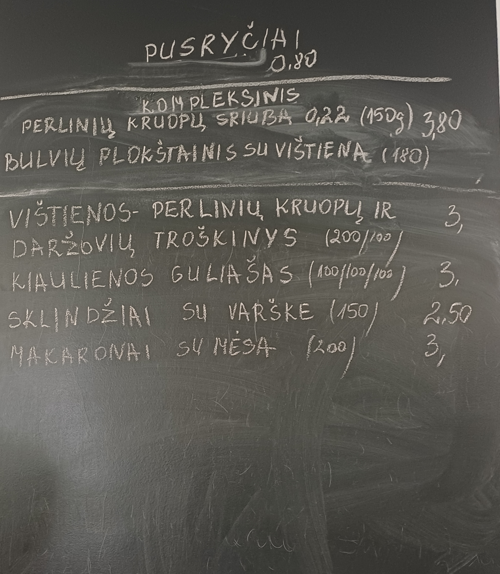 PUSRYČIAI
0,80
KOMPLEKSINIS
PERLINIŲ KRUOPŲ SRIUBA 0,22 (150g) 3,80
BULVIŲ PLOKŠTAINIS SU VIŠTIENA (180)
VIŠTIENOS- PERLINIŲ KRUOPŲ IR 3,
DARŽOVIŲ TROŠKINYS (200/100)
KIAULIENOS GULIAŠAS (100/100/100) 3,
SKLINDŽIAI SU VARŠKE (150) 2,50
MAKARONAI SU MĖSA (200) 3,